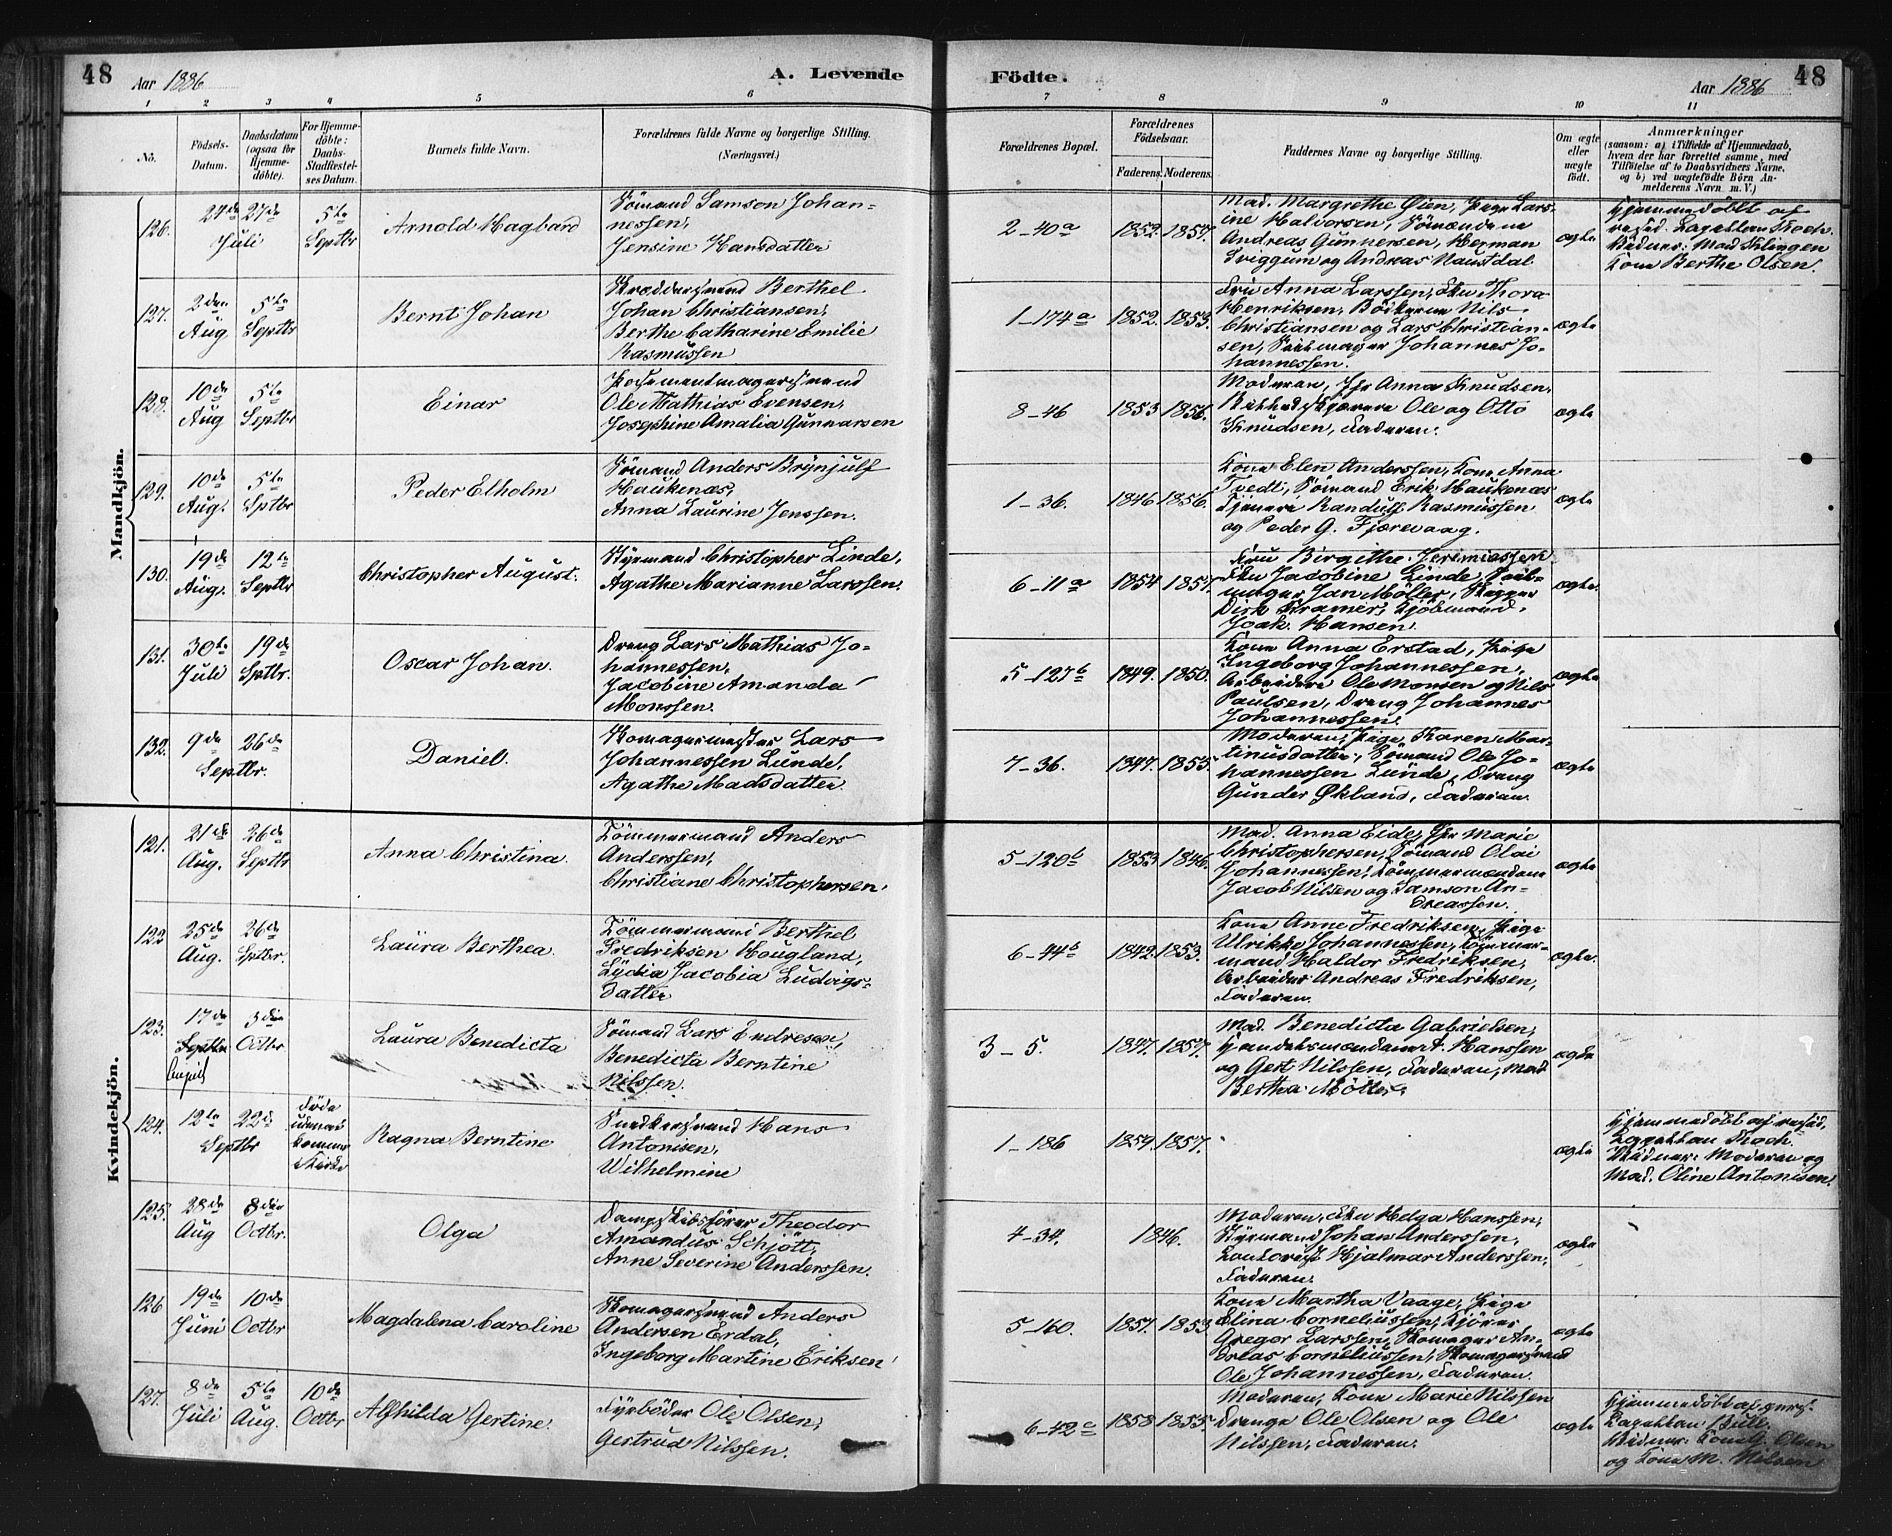 48 Aar 1886 A. Levende
Födte. Aar 1886 48
1 2 3 4 5 6 7 8 9 10 11
No.
Födsels-
Datum.
Daabsdatum
(ogsaa för
Hjemme-
döbte).
For Hjemme-
döbte:
Daabs-
Stadfæstel-
ses Datum.
Barnets fulde Navn.
Forældrenes fulde Navne og borgerlige Stilling.
(Næringsvei.)
Forældrenes Bopæl.
Forældrenes
Födselsaar.
Faderens. Moderens.
Faddernes Navne og borgerlige Stilling.
Om ægte
eller
uægte
født.
Anmærkninger
(saasom: a) i Tilfælde af Hjemmedaab,
hvem der har forrettet samme, med
Tilföielse af to Daabsvidners Navne,
og b) ved uægtefödte Börn An-
melderens Navn m. V.)
Mandkjön.
126.
27de
Juli
27de
5te
Septbr
Arnold Hagbard
Sömand Samson Johan-
nessen,
Jensine Hansdatter
2–40a
1852. 1857.
Mad. Margrethe Øien, Pige Lars-
ine Halvorsen, Sömændene
Andreas Gunnersen, Herman
Sviggum og Andreas Naustdal
ægte
Hjemmedöbt af
resid. Capellan Koch.
Vidner: Mad Klingen
Kone Berthe Olsen.
127.
2den
Aug
5te
Septbr
Bernt Johan
Skræddersvend Berthel
Johan Christiansen,
Berthe Catharine Emilie
Rasmussen
1–174a
1852. 1853.
Fru Anna Larssen, Fru Thora
Henriksen, Bödkerne Nils
Christiansen og Lars Christian-
sen, Seilmager Johannes Jo-
hannessen.
ægte
128.
10de
Aug
5te
Septbr
Einar
Possementmagersvend
Ole Mathias Evensen,
Josephine Amalia Gunnarsen
8–46
1853 1856.
Moderen, Jfr Anna Knudsen,
Ole og Otto
Knudsen, Faderen.
ægte
129.
10de
Aug.
5te
Sptbr
Peder Elholm
Sömand Anders Brynjulf
Haukenæs,
Anna Laurine Jenssen.
1–36.
1846 1856.
Kone Elen Anderssen, Kone Anna
Tvedt, Sömand Erik Haukenæs
Tjenere Randulf Rasmussen
og Peder G. Fjærevaag.
ægte
130.
19de
Aug.
12te
Septbr
Christopher August.
Styrmand Christopher Linde,
Agathe Marianne Larssen.
6–11a
1854 1857.
Fru Birgithe Jeremiassen
Fru Jacobine Linde, Seil-
mager Jan Möller, Skipper
Dirk Kramer, Kjöbmand
Joak. Hansen.
ægte.
131.
30te
Juli
19de
Sptbr.
Oscar Johan.
Dreng Lars Mathias Jo-
hannessen,
Jacobine Amanda
Monssen.
5–127b
1849. 1850.
Kone Anna Erstad, Pige
Ingeborg Johannessen,
Arbeidere Ole Monsen og Nils
Paulsen, Dreng Johannes
Johannessen.
ægte
132.
9de
Septbr.
26de
Daniel.
Skomagermester Lars
Johannessen Lunde,
Agathe Madsdatter
7–36.
1847. 1853.
Moderen, Pige Karen Mar-
tinusdatter, Sömand Ole Jo-
hannessen Lunde, Dreng
Gunder Økland, Faderen.
ægte
Kvindekjön.
121.
21de
Aug.
26de
Septbr
Anna Christina.
Tömmermand Anders
Anderssen,
Christiane Christophersen.
5–120b
1853 1846.
Mad. Anna Eide, Jfr Marie
Christophersen, Sömand Olai
Johannessen, Tömmermændene
Jacob Nilsen og Samson An-
dreassen.
ægte
122
25de
Aug.
26de
Septbr.
Laura Berthea.
Tömmermand Berthel
Fredriksen Hougland,
Lydia Jacobia Ludvigs-
datter
6–44b
1842. 1853.
Kone Anne Fredriksen, Pige
Ulrikke Johannessen, Tömmer-
mand Haldor Fredriksen,
Arbeider Andreas Fredriksen,
Faderen.
ægte.
123.
17de
Septbr
August
3die
Octbr
Laura Benedicta
Sömand Lars Endresen,
Benedicta Berntine
Nilssen.
3–5.
1847. 1857.
Mad. Benedicta Gabrielsen,
Handelsmændene A. Hanssen
og Gert Nilssen, Faderen, Mad
Bertha Möller.
ægte
124.
12te
Septbr
22de
Döde
uden at
komme
i Kirke
Ragna Berntine
Snedkersvend Hans
Antonisen,
Wilhelmine
1–186
1859. 1857.
ægte
Hjemmedöbt af resid.
Capellan Koch.
Vidner: Moderen og
Mad. Oline Antonisen.
125.
28de
Aug
8die
Octbr.
Olga
Dampskibsförer Theodor
Amandus Schjött,
Anne Severine Anderssen.
4–34.
1846.
Moderen, Fru Helga Hanssen,
Styrmand Johan Anderssen,
Contorist Hjalmar Anderssen,
Faderen.
ægte
126
19de
Juni
10de
Octbr
Magdalena Caroline
Skomagersvend Anders
Andersen Erdal,
Ingeborg Martine Eriksen
5–160.
1857. 1853
Kone Martha Vaage, Pige
Elina Corneliussen, Kjörer
Gregor Larssen, Skomager An-
dreas Corneliussen, Skomagersvend
Ole Johannessen, Faderen.
ægte
127.
8de
Juli
5te
Aug.
10de
Octbr
Alfhilda Gertine.
Fyrböder Ole Olsen,
Gertrud Nilssen.
6–42c
1858 1855.
Moderen, Kone Marie Nilssen
Drenge Ole Olsen og Ole
Nilssen, Faderen.
ægte
Hjemmedöbt af pers.
Capellan Bull.
Vidner: Kone G. Olsen
og Kone M. Nilsen